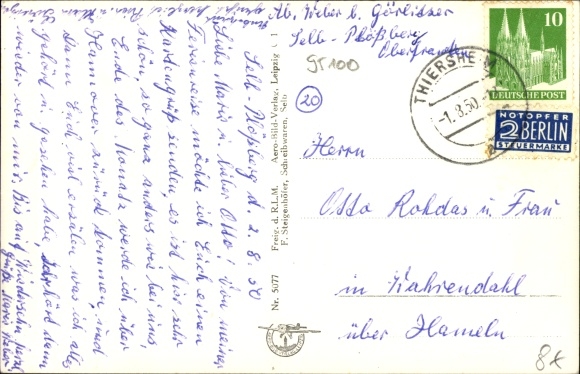 Abs. Weber b. Görlitzer
Selb-Plößberg
Oberfranken
ST 100
20
10
DEUTSCHE POST
NOTOPFER
2 BERLIN
STEUERMARKE
THIERSHEIM
-1.8.50
Herrn
Otto Rohdas u. Frau
in Hahrendahl
über Hameln
8x
Selb-Plößberg d. 2.8.50
Liebe Maria u. lieber Otto! Von meiner
Ferienreise möchte ich Euch einen
Kartengruß senden, es ist hier sehr
schön, so ganz anders wie bei uns,
Ende des Monats werde ich über
Hannover zurück kommen, und
dann Euch viel erzählen was ich alles
gehört u. gesehen habe,
wieder von mir, Bis auf Wiedersehn herzl.
Grüße
Nr. 5077 Freig. d. R.L.M. Aero-Bild-Verlag, Leipzig C 1
F. Steigenhöfer, Schreibwaren, Selb